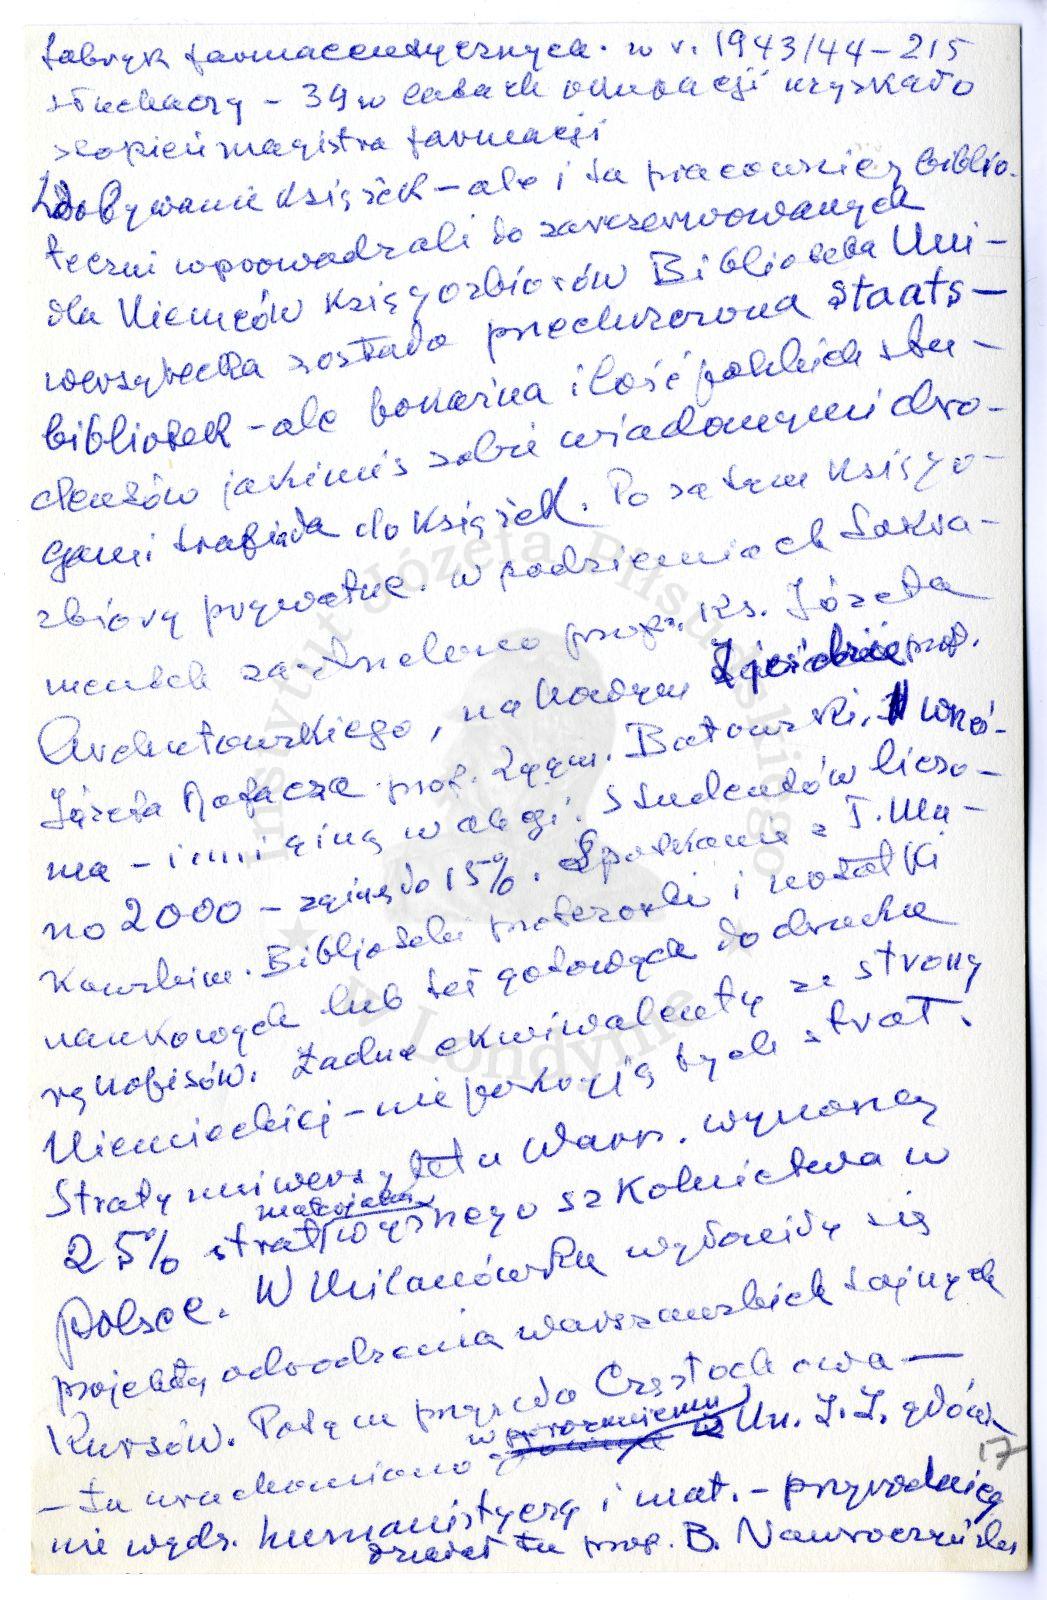 fabryk farmaceutycznych. w r. 1943/44 – 215
słuchaczy – 39 w latach okupacji uzyskało
stopień magistra farmacji
Zdobywanie książek – ale i tu pracownicy biblio-
teczni wprowadzali do zarezerwowanych
dla Niemców księgozbiorów Biblioteka Uni-
wersytecka została przechrzczona Staats-
bibliotek – ale pokaźna ilość polskich stu-
dentów jakimiś sobie wiadomymi dro-
gami trafiała do książek. Po za tym księgo-
zbiory prywatne. w podziemiach Sakra-
mentek zastrzelono prof. Ks. Józefa
Archutowskiego, na Nowym Zjeździe prof.
Józefa Rafacza prof. Zygm. Batowski,
ma – i inni giną w akcji. Studentów liczo-
no 2000 – zginęło 15%. Spotkanie z T. Ma-
kowskim. Biblioteki profesorki i notatki
naukowych lub też gotowych do druku
rękopisów. Żadne ekwiwalenty ze strony
Niemieckiej – nie pokryją tych strat.
Straty uniwersytetu Warsz. wynoszą
25% strat materjalnych wyższego szkolnictwa w
Polsce. W Milanówku wyłoniły się
projekty odrodzenia warszawskich tajnych
Kursów. Potym przyszło Częstochowa –
– tu uruchomiono w porozumieniu Un. J. J. głów-
17
nie wydz. humanistyczny i mat. – przyrodniczy
działał tu prof. B. Nawroczyński
Instytut Józefa Piłsudskiego
w Londynie